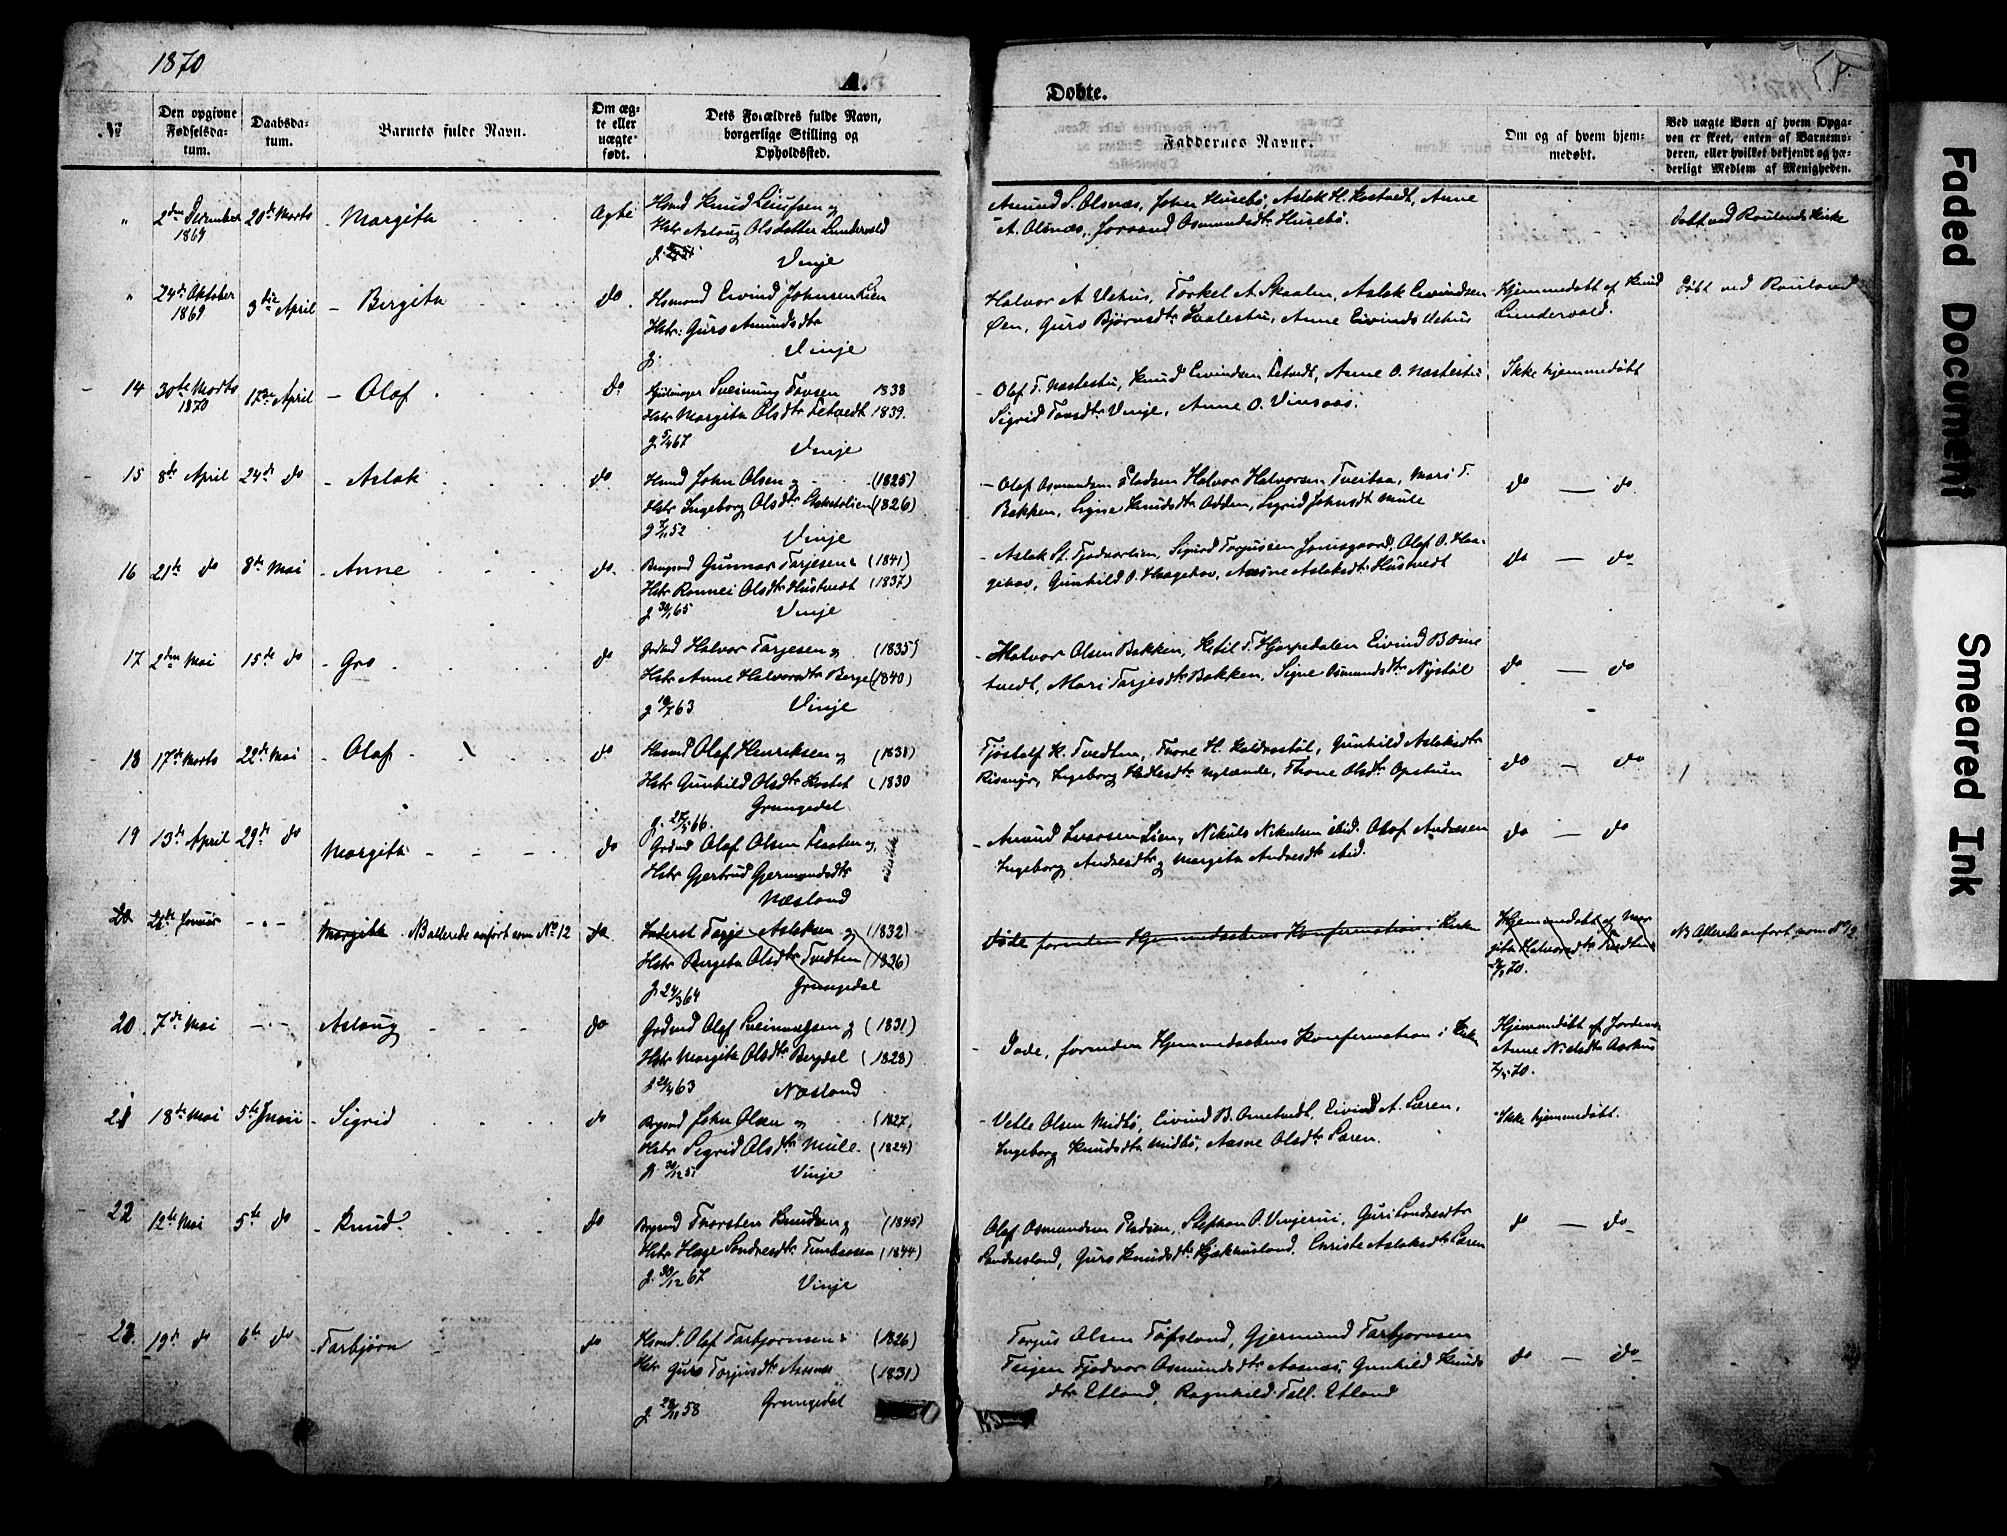 1870
A.
Døbte.
№
Den opgivne Fødselsdatum.
Daabsdatum.
Barnets fulde Navn.
Om ægte eller uægte født.
Dets Forældres fulde Navn, borgerlige Stilling og Opholdssted.
Faddernes Navne.
Om og af hvem hjemmedøbt.
Ved uægte Børn af hvem Opgaven er skeet, enten af Barnemoderen, eller hvilket bekjendt og hæderligt Medlem af Menigheden.
" 2den December 1869 20de Marts - Margita Ægte
Hsmd Knud Leiufsen og
Hstr Aslaug Olsdatter Lundevald
Vinje
Amund S. Olsnæs, John Husebø, Aslak H. Kostvedt, Anne
A. Olsnæs, Joraand Osmundsdtr Husebø.
Døbt ved Raulands Kirke
" 24de Oktober 1869 3die April - Bergita do.
Hsmand Eivind Johnsen Lien
Hstr: Guro Amundsdtr
g. Vinje
Halvor A. Vehus, Torkel A. Skaalen, Aslak Eivindsen
Øen, Guro Bjørnsdtr Haalestu, Anne Eivindsd Vehus
Hjemmedøbt af Knud
Lundevald.
Døbt ved Rauland
14 30te Marts 1870 17de April - Olaf do
Sveinung Tovsen 1838
Hstr Margita Olsdtr Letvedt 1839.
g. 5/4 67
Vinje
- Olaf T. Næstestu, Knud Eivindsen Letvedt, Anne O. Næstestu
Sigrid Tovsdtr Vinje, Anne O. Vinsaas.
Ikke hjemmedøbt
15 8de April 24de do - Aslak do
Hsmd John Olsen og (1825)
Hstr Ingeborg Olsdtr (1826)
Vinje
- Olaf Osmundsen Pladsen Halvor Halvorsen Tveitaa, Mari T.
Bakken, Signe Knudsdtr Odden, Sigrid Johnsdt Mule
do — do.
16 21de do 8de Mai - Anne do.
Brugmd Gunnar Tarjesen & (1841)
Hstr Rannei Olsdtr Hustvedt (1837)
g. 30/1 65 Vinje
- Aslak St. Fjodvarlien, Sigurd Torjussen Jamsgaard, Olaf O. Haa-
gehov, Gunhild O. Haagehov, Aasne Aslaksdtr Hustvedt
do — do
17 2den Mai 15de do - Gro do
Grdmd Halvor Tarjesen og (1835)
Hstr Anne Halvorsdtr Berge (1840)
g 10/7 63 Vinje
- Halvor Olsen Bakken, Ketil T. Hjerpedalen Eivind B. Ome
tvedt, Mari Tarjesdtr Bakken, Signe Osmundsdtr Nystøl
do — do
18 17de Marts 22de Mai - Olaf do
Husmd Olaf Henriksen og (1831)
Hstr Gunhild Olsdtr Kostet (1830
Grungedal
g. 27/5 66.
Tjøstolf K. Tvedten, Thone H. Keldrostøl, Gunhild Aslaksdtr
Rismyr, Ingeborg Nylænde, Thone Olsdtr Opstuen
do — do
19 13de April 29de do Margita do
Grdmd Olaf Olsen Flaaten og
Hstr Gjertrud Gjermundsdtr
Næsland
- Amund Lien, Nikuls Nikulsen ibid. Olaf Andresen
Ingeborg Andresdtr og Margita Andresdtr ibid.
do — do
20 Januar Margita NB allerede anført som No 12 do
Inderst Tarje Aslaksen og (1832)
Hstr Bergita Olsdtr Tvedten (1836)
g. 24/3 64 Grungedal
Døde forinden Hjemmedaabens Konfirmation i Kirken
Hjemmedøbt af Mar
gita Halvorsdtr Tvedten
NB Allerede anført som No 12
20 7de Mai Aslaug do
Grdmd Olaf Sveinungsen og (1831)
Hstr Margita Olsdtr Bergdal (1828)
Næsland
- Døde, forinden Hjemmedaabens Konfirmation i Kirken
Hjemmedøbt af Jordm.
Anne Nielsdtr Aarhus
21 18de Mai 5te Junii - Sigrid do
Brgmd John Olsen og (1827,
Hstr Sigrid Olsdtr Mule. (1824)
Vinje
- Vetle Olsen Midbø, Eivind B. Ometvedt, Eivind A. Særen.
Ingeborg Knudsdtr Midbø, Aasne Olsdtr Særen.
Ikke hjemmedøbt.
22 12te Mai 5te do - Knud. do
Brgmd Thorsten Knudsen og (1845)
Hstr Hæge Sondresdtr (1844)
g. 30/12 67 Vinje
Olaf Osmundsen Pladsen, Stephan O. Vinjerui, Guri Sondresdtr
Sandæsland, Guro Knudsdtr, Christi Aslaksdtr Særen
do — do
23. 19de do 6te do - Tarbjørn do
Hsmd. Olaf Tarbjørnsen & (1826)
Hstr Guro Torjusdtr Aasnæs (1831)
g. 28/11 58 Grungedal
Torjus Olsen Tofsland, Gjermund Tarbjørnsen
Teigen Fjodvor Osmundsdtr Aasnæs, Gunhild Knuds
dtr Etland, Ragnhild Tell. Etland
do — do
Faded Document
Smeared Ink